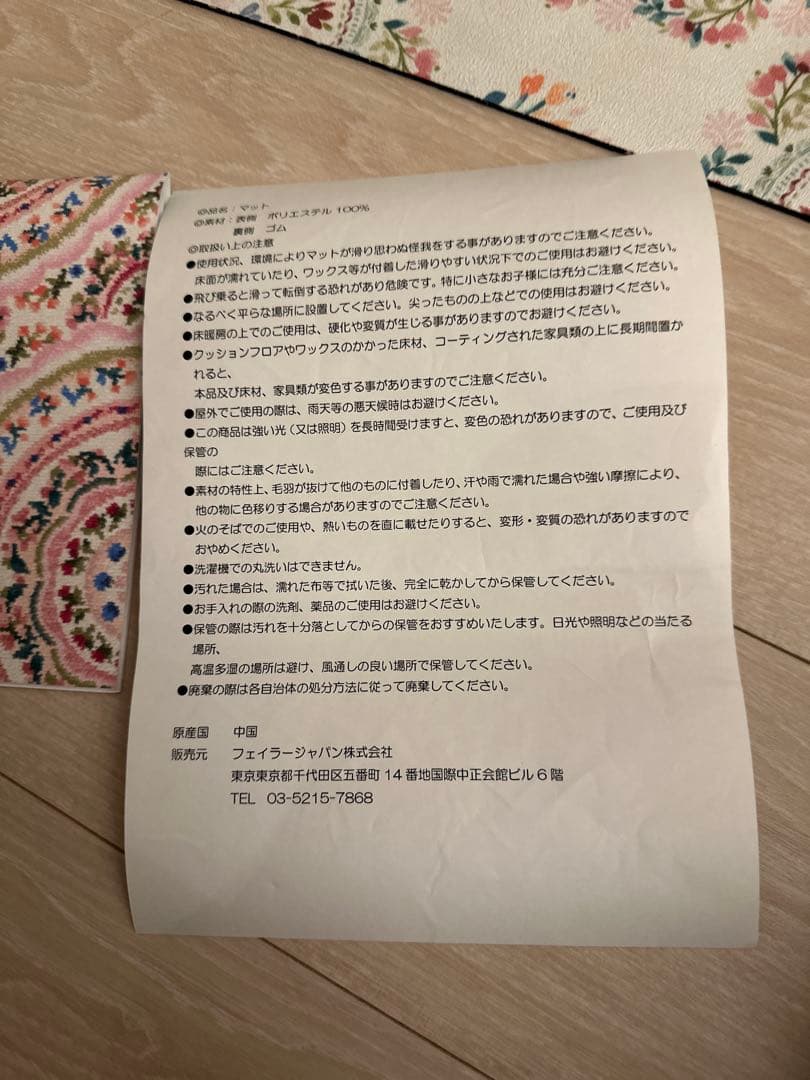 ◎品名：マット
◎素材：表側　ポリエステル 100%
裏側　ゴム
◎取扱い上の注意
●使用状況、環境によりマットが滑り思わぬ怪我をする事がありますのでご注意ください。
床面が濡れていたり、ワックス等が付着した滑りやすい状況下でのご使用はお避けください。
●飛び乗ると滑って転倒する恐れがあり危険です。特に小さなお子様には充分ご注意ください。
●なるべく平らな場所に設置してください。尖ったものの上などでの使用はお避けください。
●床暖房の上でのご使用は、硬化や変質が生じる事がありますのでお避けください。
●クッションフロアやワックスのかかった床材、コーティングされた家具類の上に長期間置か
れると、
本品及び床材、家具類が変色する事がありますのでご注意ください。
●屋外でご使用の際は、雨天等の悪天候時はお避けください。
●この商品は強い光（又は照明）を長時間受けますと、変色の恐れがありますので、ご使用及び
保管の
際にはご注意ください。
●素材の特性上、毛羽が抜けて他のものに付着したり、汗や雨で濡れた場合や強い摩擦により、
他の物に色移りする場合がありますのでご注意ください。
●火のそばでのご使用や、熱いものを直に載せたりすると、変形・変質の恐れがありますので
おやめください。
●洗濯機での丸洗いはできません。
●汚れた場合は、濡れた布等で拭いた後、完全に乾かしてから保管してください。
●お手入れの際の洗剤、薬品のご使用はお避けください。
●保管の際は汚れを十分落としてからの保管をおすすめいたします。日光や照明などの当たる
場所、
高温多湿の場所は避け、風通しの良い場所で保管してください。
●廃棄の際は各自治体の処分方法に従って廃棄してください。
原産国　中国
販売元　フェイラージャパン株式会社
東京東京都千代田区五番町 14 番地国際中正会館ビル 6 階
TEL 03-5215-7868